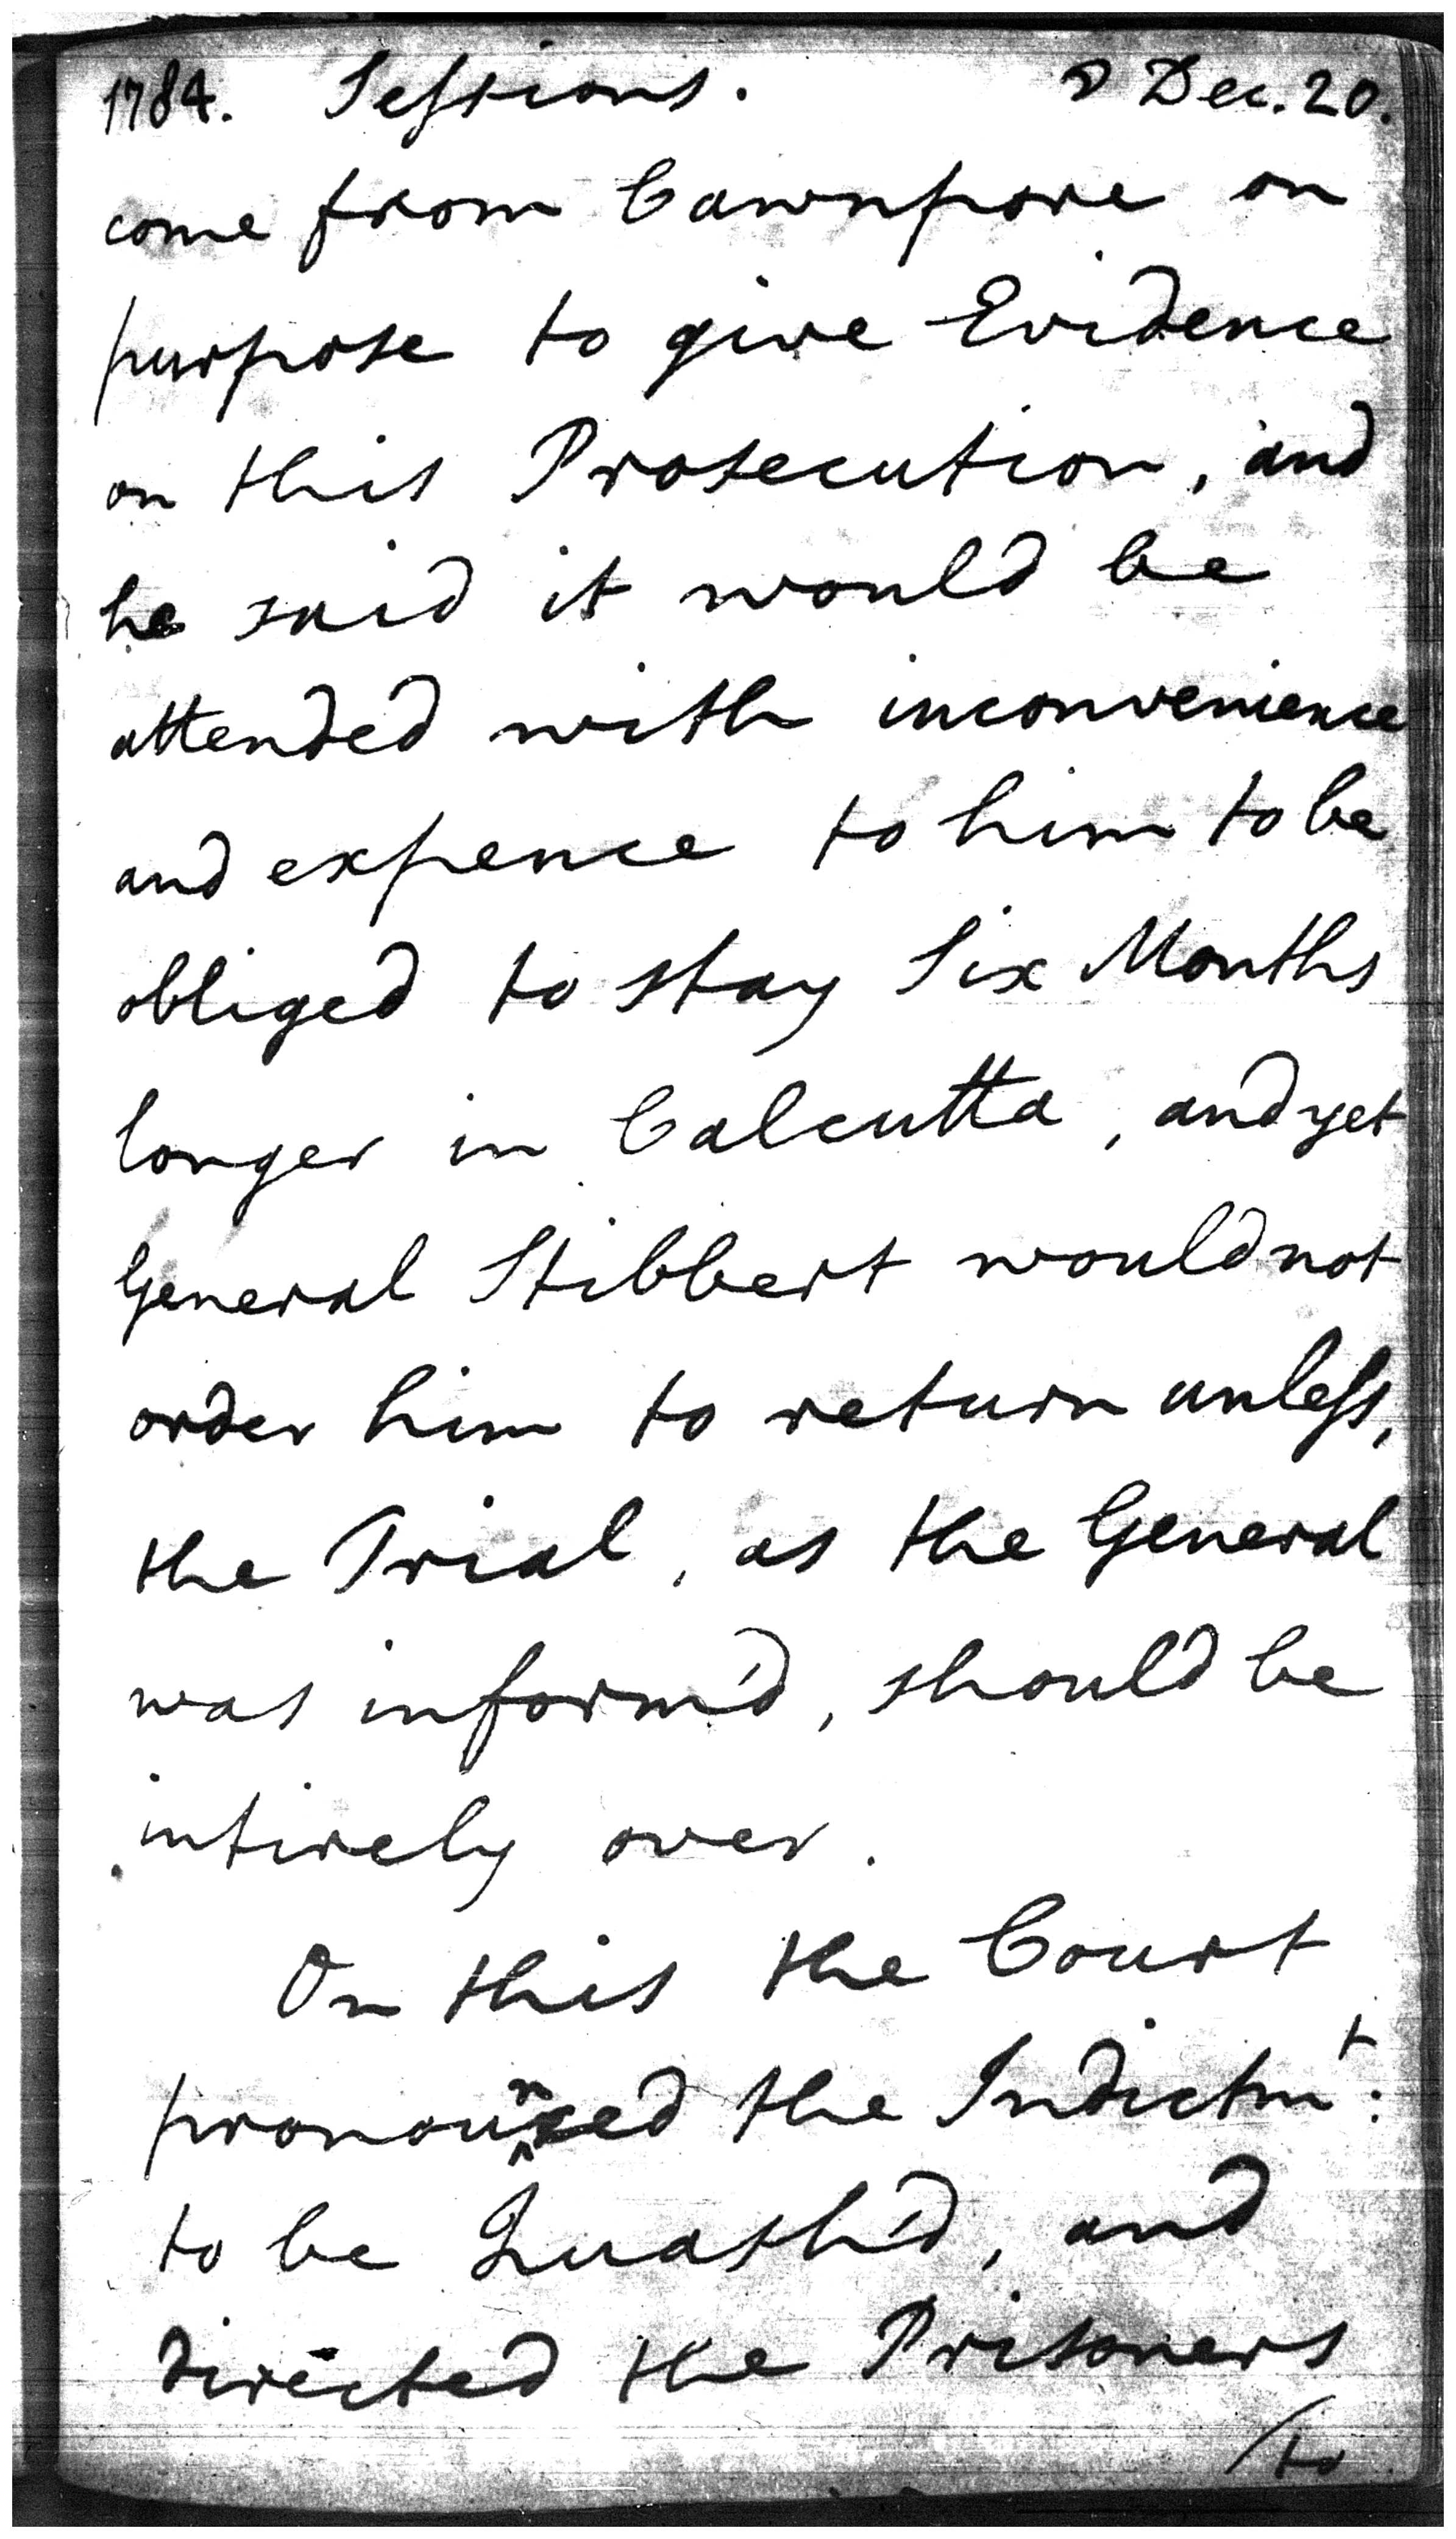 1784. Sessions. Dec. 20.
come from Cawnpore on
purpose to give Evidence
on this Prosecution, and
he said it would be
attended with inconvenience
and expence to him to be
obliged to stay Six Months
longer in Calcutta, and yet
General Stibbert would not
order him to return unless,
the Trial, as the General
was inform'd, should be
intirely over.
On this the Court
pronounced the Indictmt:
to be Quash'd, and
directed the Prisoners
/to